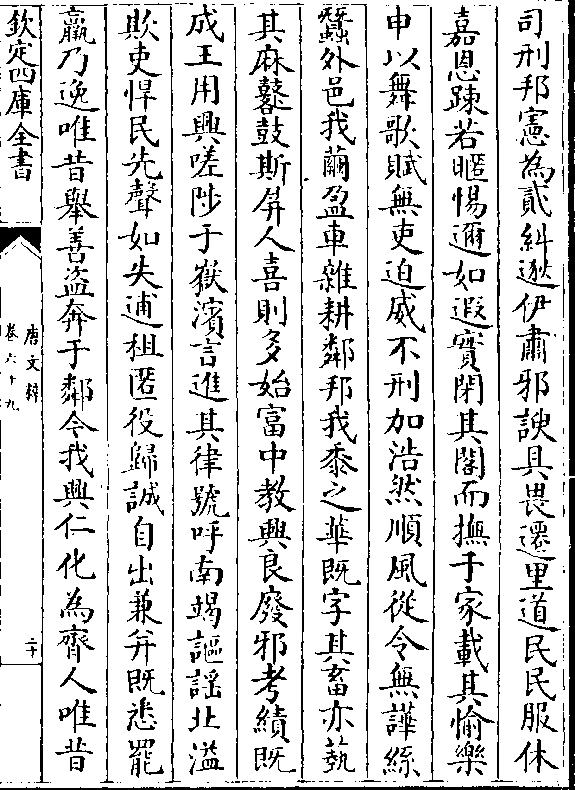 司刑邦憲為貳糾逖伊肅邪諛具畏還里道民民服休
嘉恩踈若暱惕邇如遐實閉其閤而撫于家載其愉樂
申以舞歌賦無吏迫威不刑加浩然順風從令無譁絲
蠶外邑我繭盈車雜耕鄰邦我黍之華既字其畜亦蓺
其麻鼛鼓斯屏人喜則多始富中教興良廢邪考績既
成王用興嗟陟于嶽濱言進其律號呼南竭謳謡北溢
欺吏悍民先聲如失逋租匿役歸誠自出兼并既息罷
羸乃逸唯昔舉善盜奔于鄰今我興仁化為齊人唯昔
欽定四庫全書
唐文粹
卷六十九
二十